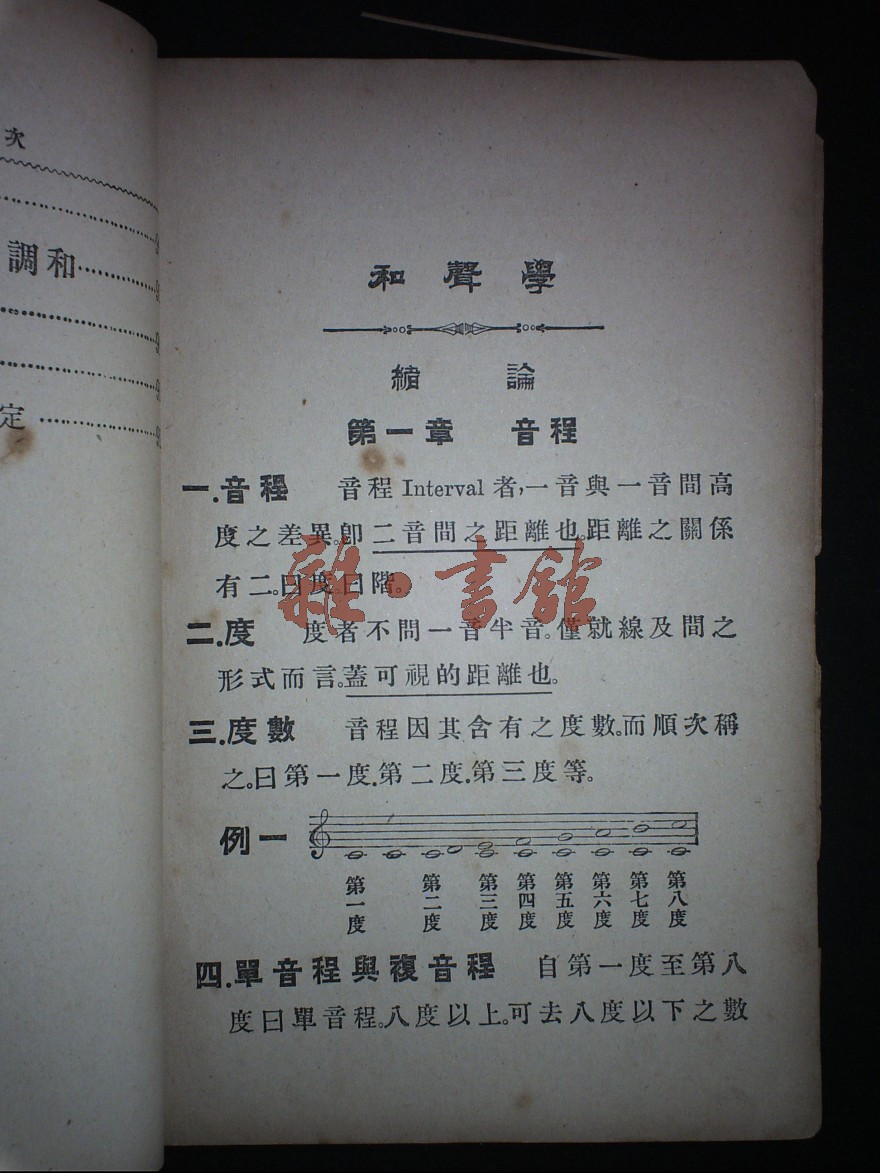 次
調和
定
和聲學
緒論
第一章 音程
一.音程 音程Interval者,一音與一音間高
度之差異。卽二音間之距離也。距離之關係
有二。曰度。曰階。
二.度 度者不問一音半音。僅就線及間之
形式而言。蓋可視的距離也。
三.度數 音程因其含有之度數。而順次稱
之。曰第一度.第二度.第三度等。
例一
第一度 第二度 第三度 第四度 第五度 第六度 第七度 第八度
四.單音程與複音程 自第一度至第八
度曰單音程。八度以上。可去八度以下之數
雜·書館